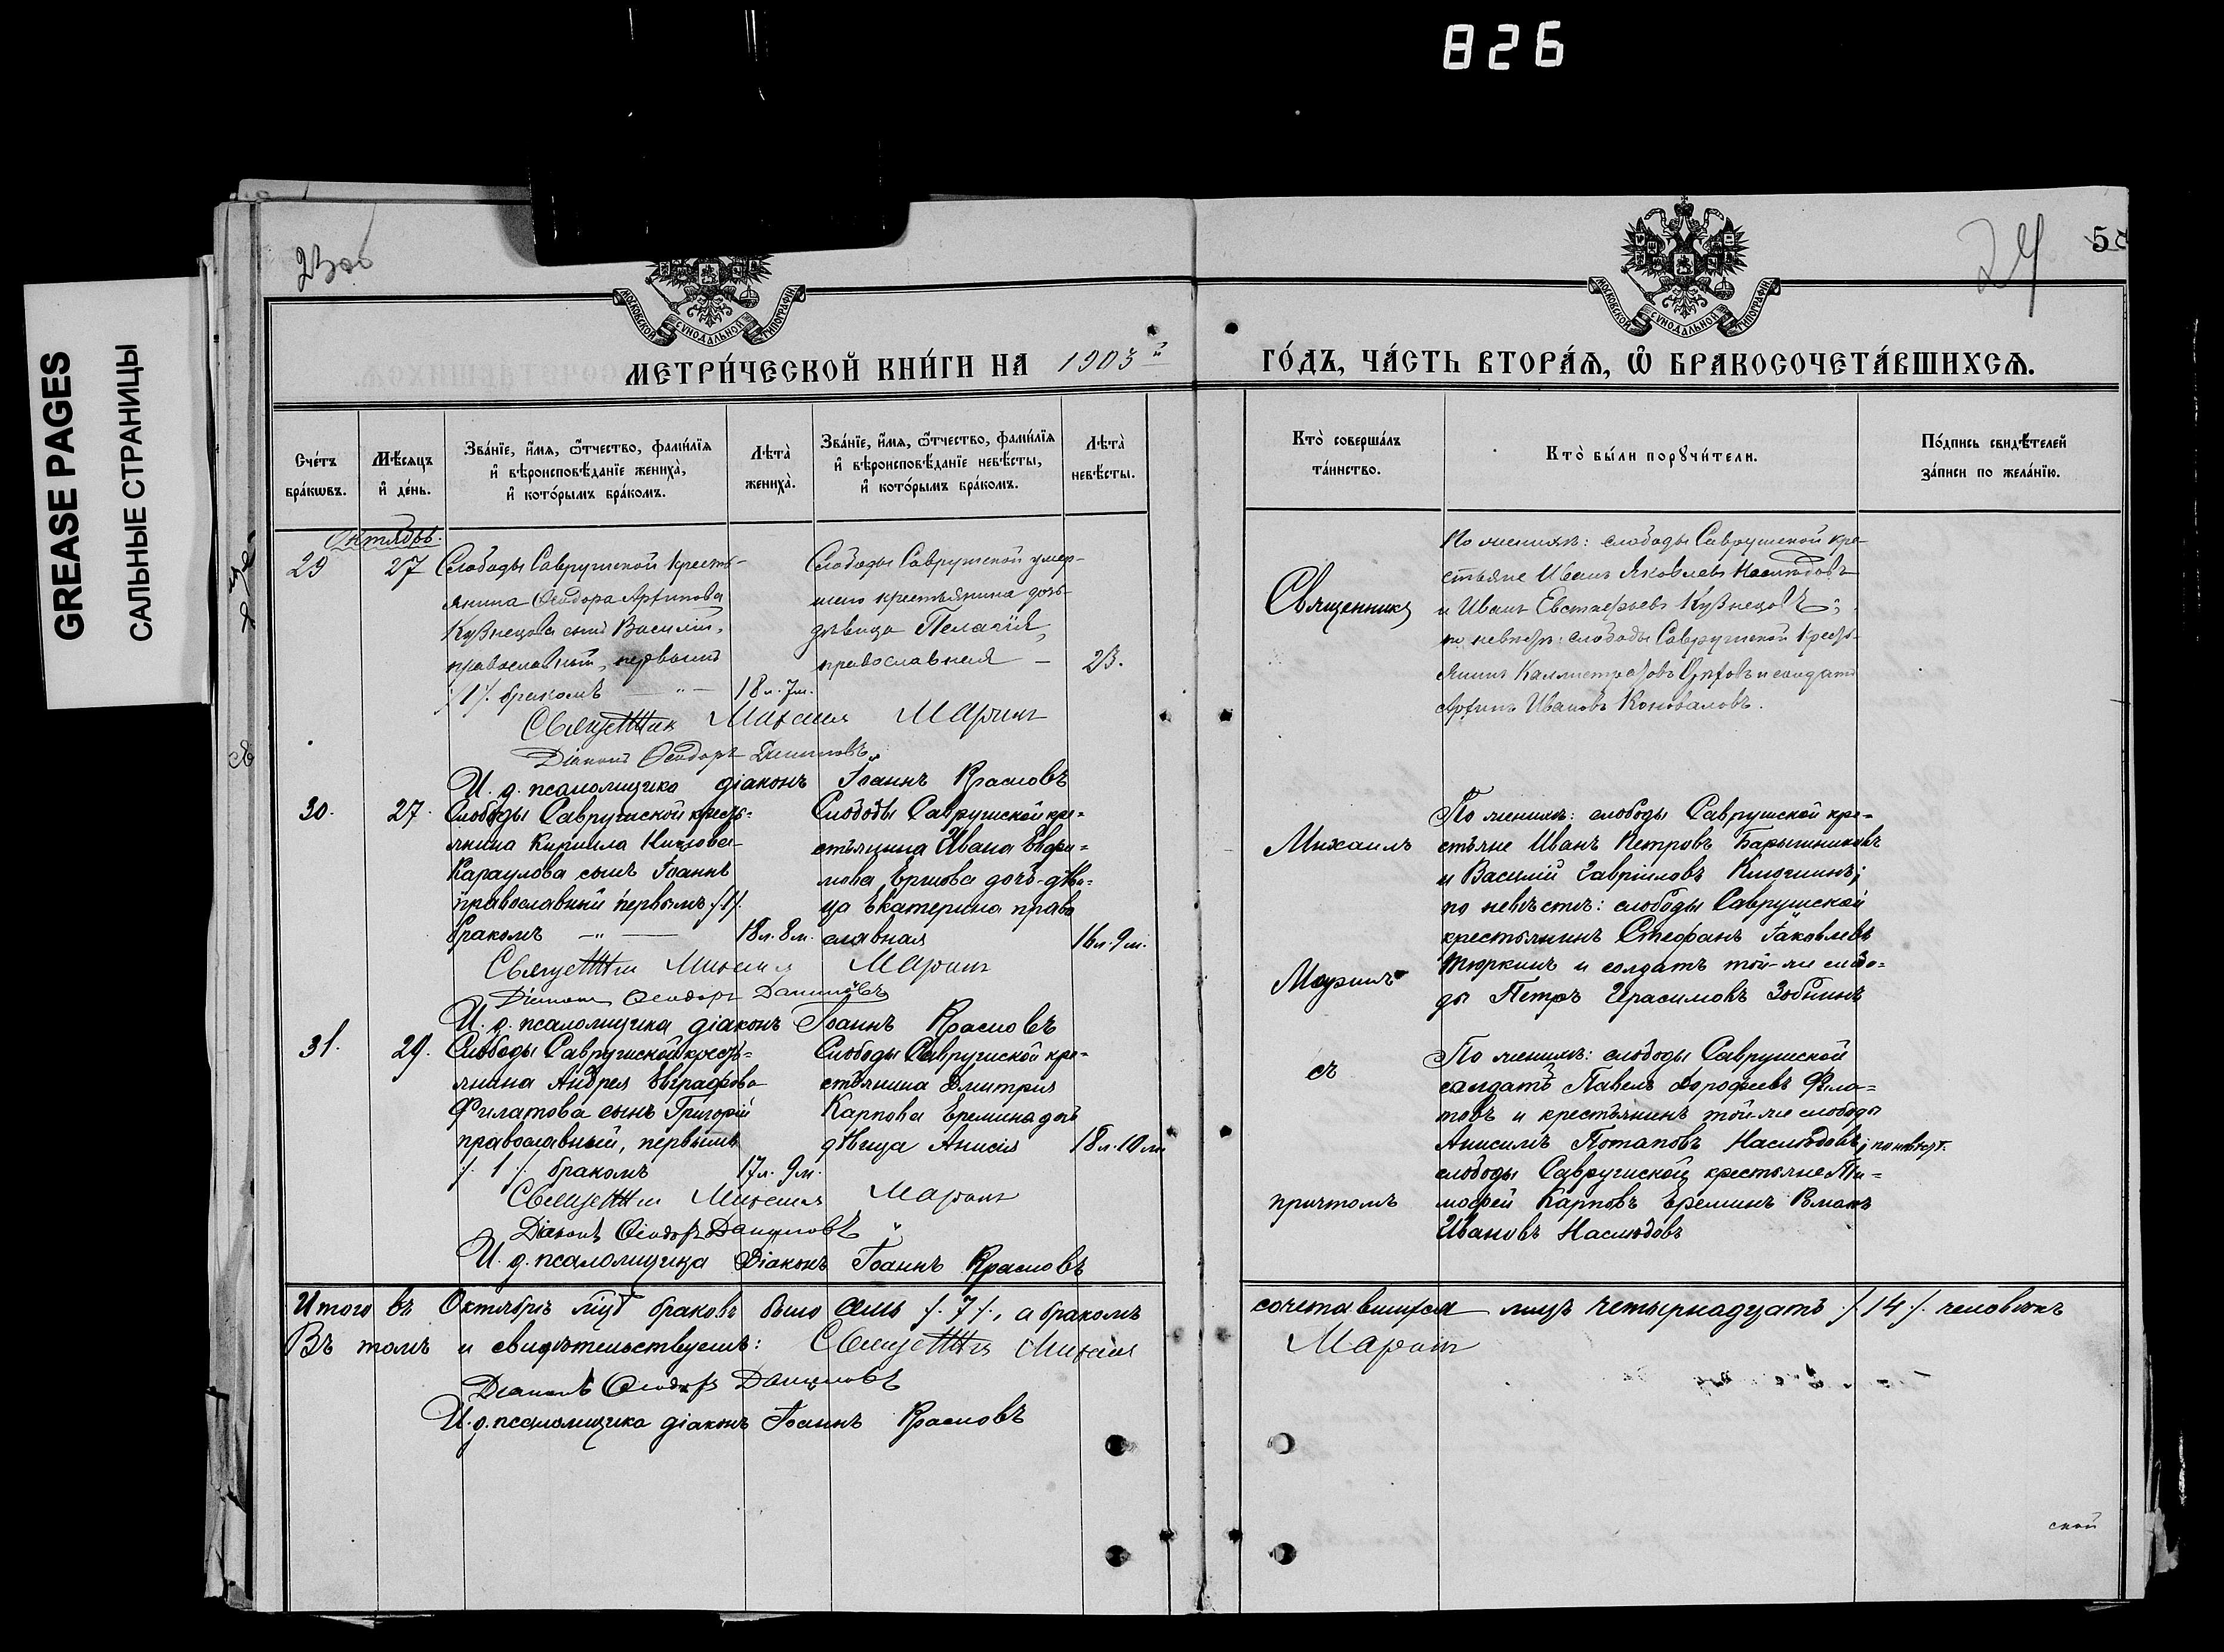 826
GREASE PAGES
САЛЬНЫЕ СТРАНИЦЫ
23об
24
МОСКОВСКОЙ СУНОДАЛЬНОЙ ТИПОГРАФІИ
МОСКОВСКОЙ СУНОДАЛЬНОЙ ТИПОГРАФІИ
МЕТРИ́ЧЕСКОЙ КНИ́ГИ НА 1903й
ГО́ДЪ, ЧА́СТЬ ВТОРА́Ѧ, Ѽ БРАКОСОЧЕТА́ВШИХСѦ.
Сче́тъ бра́кѡвъ.
Мѣ́сѧцъ и҆ де́нь.
Зва́нїе, и҆́мѧ, ѻ҆́тчество, фамі́лїѧ
и҆ вѣроисповѣ́данїе жениха̀,
и҆ кото́рымъ бра́комъ.
Лѣта̀ жениха̀.
Зва́нїе, и҆́мѧ, ѻ҆́тчество, фамі́лїѧ
и҆ вѣроисповѣ́данїе невѣ́сты,
и҆ кото́рымъ бра́комъ.
Лѣта̀ невѣ́сты.
Кто̀ соверша́лъ та́инство.
Кто̀ бы́ли порꙋчи́тели.
По́дпись свидѣ́телей
за́писи по жела́нїю.
Октябрь.
29
27
Слободы Саврушской кресть-
янина Ѳеодора Архипова
Кузнецова сынъ Василій,
православный, первымъ
/1/. бракомъ
18 л. 7 м.
Слободы Саврушской умер-
шаго крестьянина дочь
дѣвица Пелагія,
православная –
23.
Священникъ
По женихѣ: слободы Саврушской кре-
стьяне Иванъ Яковлевъ Наслѣдовъ
и Иванъ Евстафьевъ Кузнецовъ;
по невѣстѣ: слободы Саврушской кресть-
янинъ и солдатъ
Архипъ Ивановъ Коноваловъ.
Священник Михаилъ Маринъ
Діаконъ Ѳеодоръ Даниловъ
И. д. псаломщика діаконъ Іоаннъ Красновъ
30.
27.
Слободы Саврушской кресть-
янина Кирилла
Караулова сынъ Іоаннъ
православный первымъ /1/.
бракомъ
18 л. 8 м.
Слободы Саврушской кре-
стьянина Ивана Евфи-
мова Ершова дочь-дѣви-
ца Екатерина право
славная
16 л. 9 м.
Михаилъ
Маринъ
По женихѣ: слободы Саврушской кре-
стьяне Иванъ Петровъ Барышниковъ
и Василій Гавріиловъ
по невѣстѣ: слободы Саврушской
крестьянинъ Стефанъ Іаковлевъ
Тюркинъ и солдатъ той-же слобо-
ды Петръ Герасимовъ Зобнинъ
Священник Михаилъ Маринъ
Діаконъ Ѳеодоръ Даниловъ
И. д. псаломщика діаконъ Іоаннъ Красновъ
31.
29.
Слободы Саврушской кресть-
янина Андрея Евграфова
Филатова сынъ Григорій
православный, первымъ
/. 1 /. бракомъ
17 л. 9 м.
Слободы Саврушской кре-
стьянина Дмитрія
Карпова Еремина дочь
дѣвица Анисія
18 л. 10 м.
съ
причтомъ
По женихѣ: слободы Саврушской
солдатъ Павелъ Дорофеевъ Фила-
товъ и крестьянинъ той-же слободы
Анисимъ Потаповъ Наслѣдовъ; по невѣст.
слободы Саврушской крестьяне Ти-
мофей Карповъ Ереминъ
Ивановъ Наслѣдовъ
Священник Михаилъ Маринъ
Діаконъ Ѳеодоръ Даниловъ
И. д. псаломщика Діаконъ Іоаннъ Красновъ
Итого въ Октябрѣ мцѣ браковъ было семь /. 7 /., а бракомъ
сочетавшихся лицъ четырнадцать /. 14 /. человѣкъ
Въ томъ и свидѣтельствуемъ: Священник Михаилъ
Маринъ
Діаконъ Ѳеодоръ Даниловъ
И. д. псаломщика діаконъ Іоаннъ Красновъ
ской